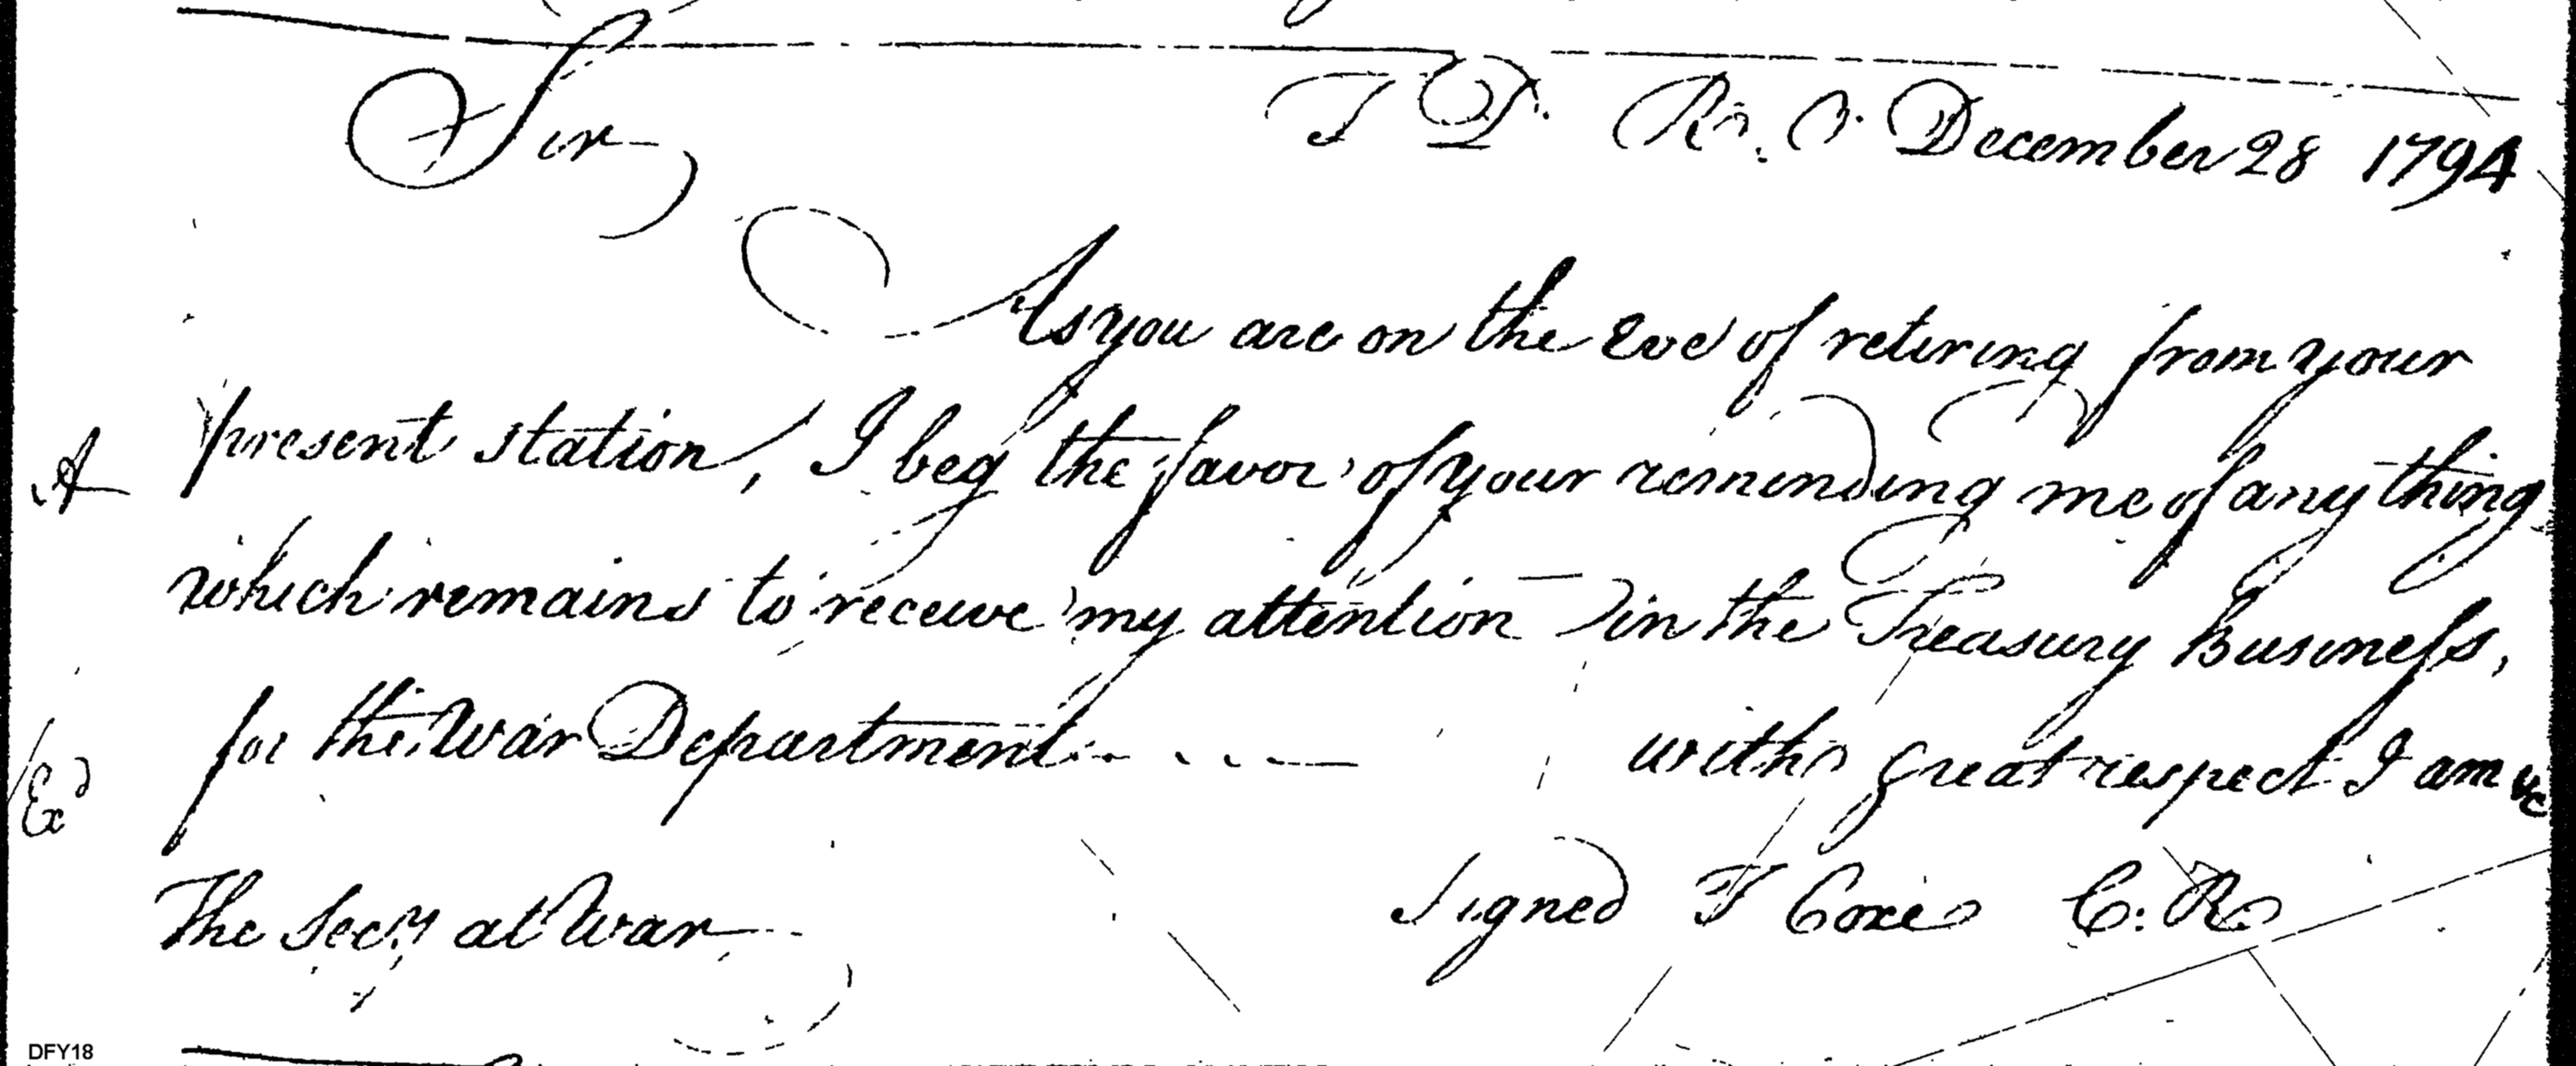 Sir T D. R. O. December 28 1794
As you are on the Eve of retiring from your
present station, I beg the favor of your reminding me of any thing
A
which remains to receive my attention in the Treasury Business,
for the War Department with great respect I am &c
Exd
The Secy at War Signed T Coxe C. R.
DFY18